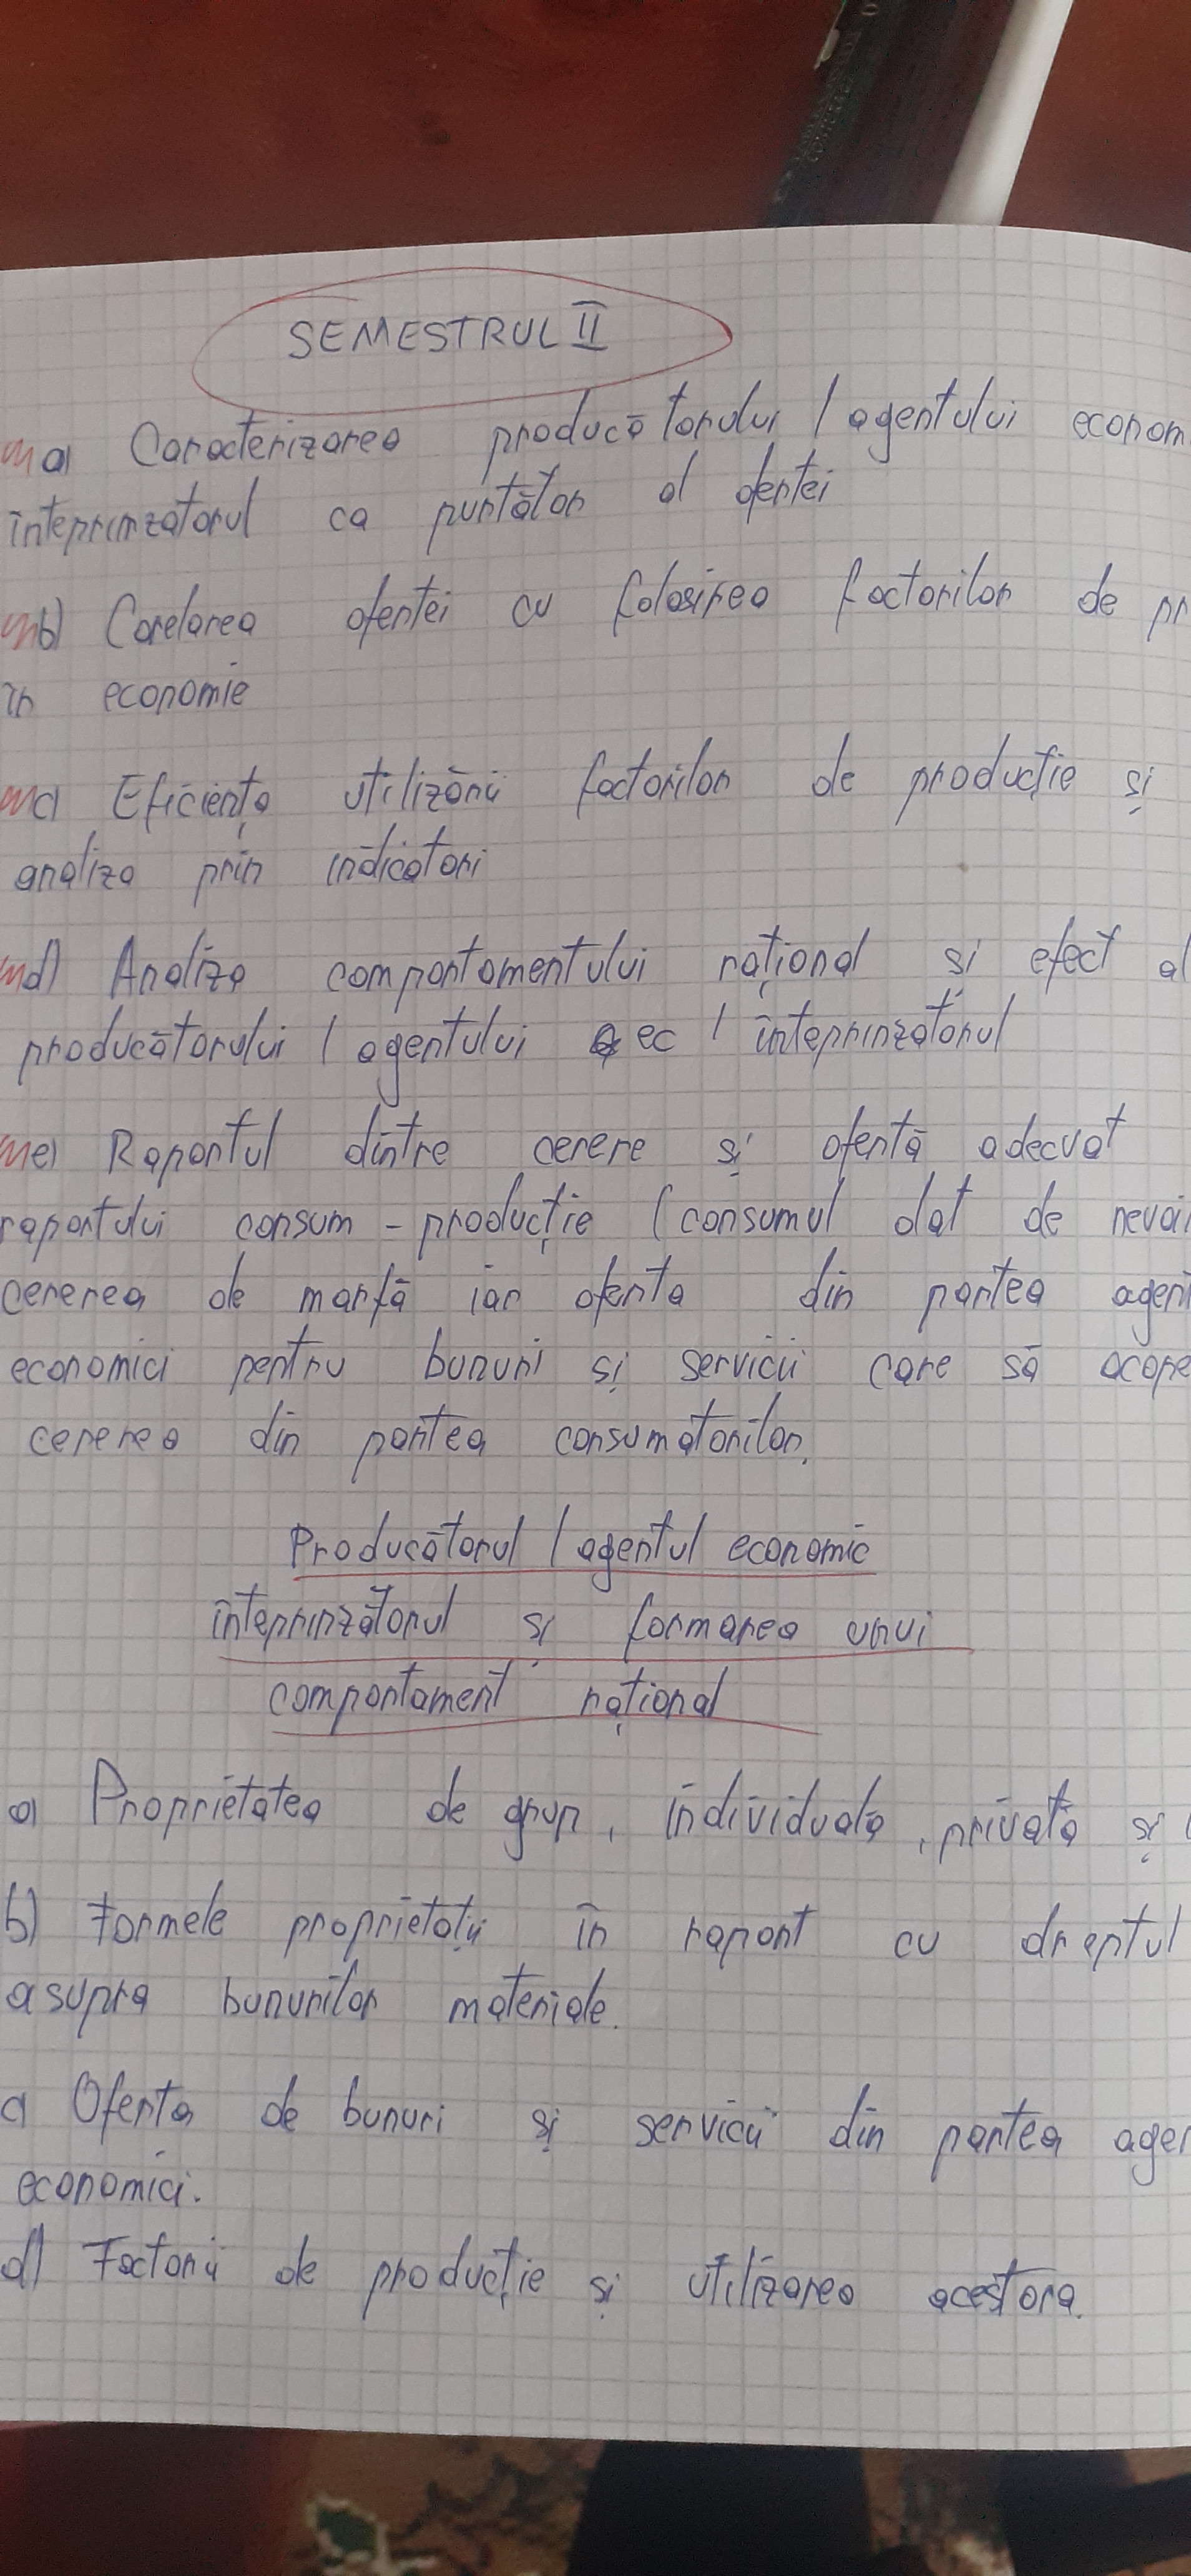 SEMESTRUL II
a) Caracterizarea producătorului / agentului econom
întreprinzatorul ca purtător al ofertei
b) Corelarea ofertei cu folosirea factorilor de pr
în economie
c) Eficiența utilizării factorilor de producție și
analiza prin indicatori
d) Analiza comportamentului rațional și efect al
producătorului / agentului ec / inteprinzatorul
e) Raportul dintre cerere și ofertă adecvat
raportului consum - producție (consumul dat de nevoi
cererea de marfă iar oferta din partea agen
economici pentru bunuri și servicii care să acope
cererea din partea consumatorilor.
Producătorul / agentul economic
inteprinzătorul și formarea unui
comportament rațional
a) Proprietatea de grup, individuală, privată și
b) Formele proprietății în raport cu dreptul
asupra bunurilor materiale.
c) Oferta de bunuri și servicii din partea agen
economici.
d) Factorii de producție și utilizarea acestora.